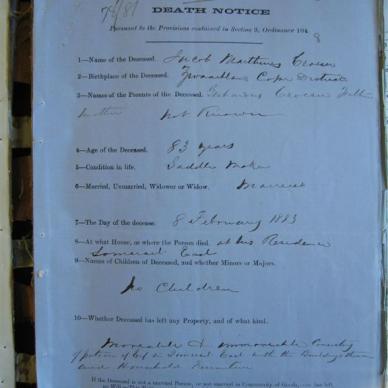 78/81
DEATH NOTICE
Pursuant to the Provisions contained in Section 9, Ordinance 104
1—Name of the Deceased. Jacob Matthews
2—Birthplace of the Deceased. Cape District
3—Names of the Parents of the Deceased.
Mother not Known
4—Age of the Deceased. 83 years
5—Condition in life. Saddle Maker
6—Married, Unmarried, Widower or Widow. Married
7—The Day of the decease. 8 February 1883
8—At what House, or where the Person died. at his Residence
Somerset East
9—Names of Children of Deceased, and whether Minors or Majors.
No Children
10—Whether Deceased has left any Property, and of what kind.
Moveable & immoveable
in Somerset East with the Buildings
and Household Furniture
If the Deceased is not a married Person, or not married in Community of Goods,